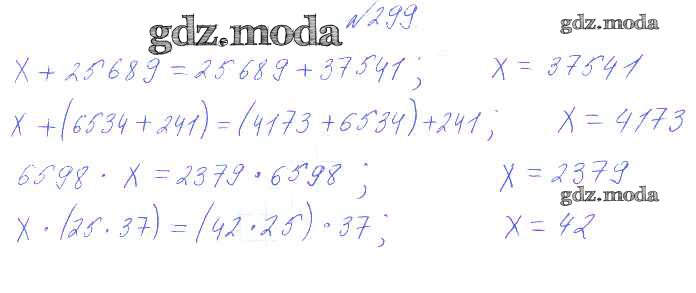 №299.
gdz.moda
gdz.moda
x + 25689 = 25689 + 37541; x = 37541
x + (6534 + 241) = (4173 + 6534) + 241; x = 4173
6598 · x = 2379 · 6598; x = 2379
gdz.moda
x · (25 · 37) = (42 · 25) · 37; x = 42